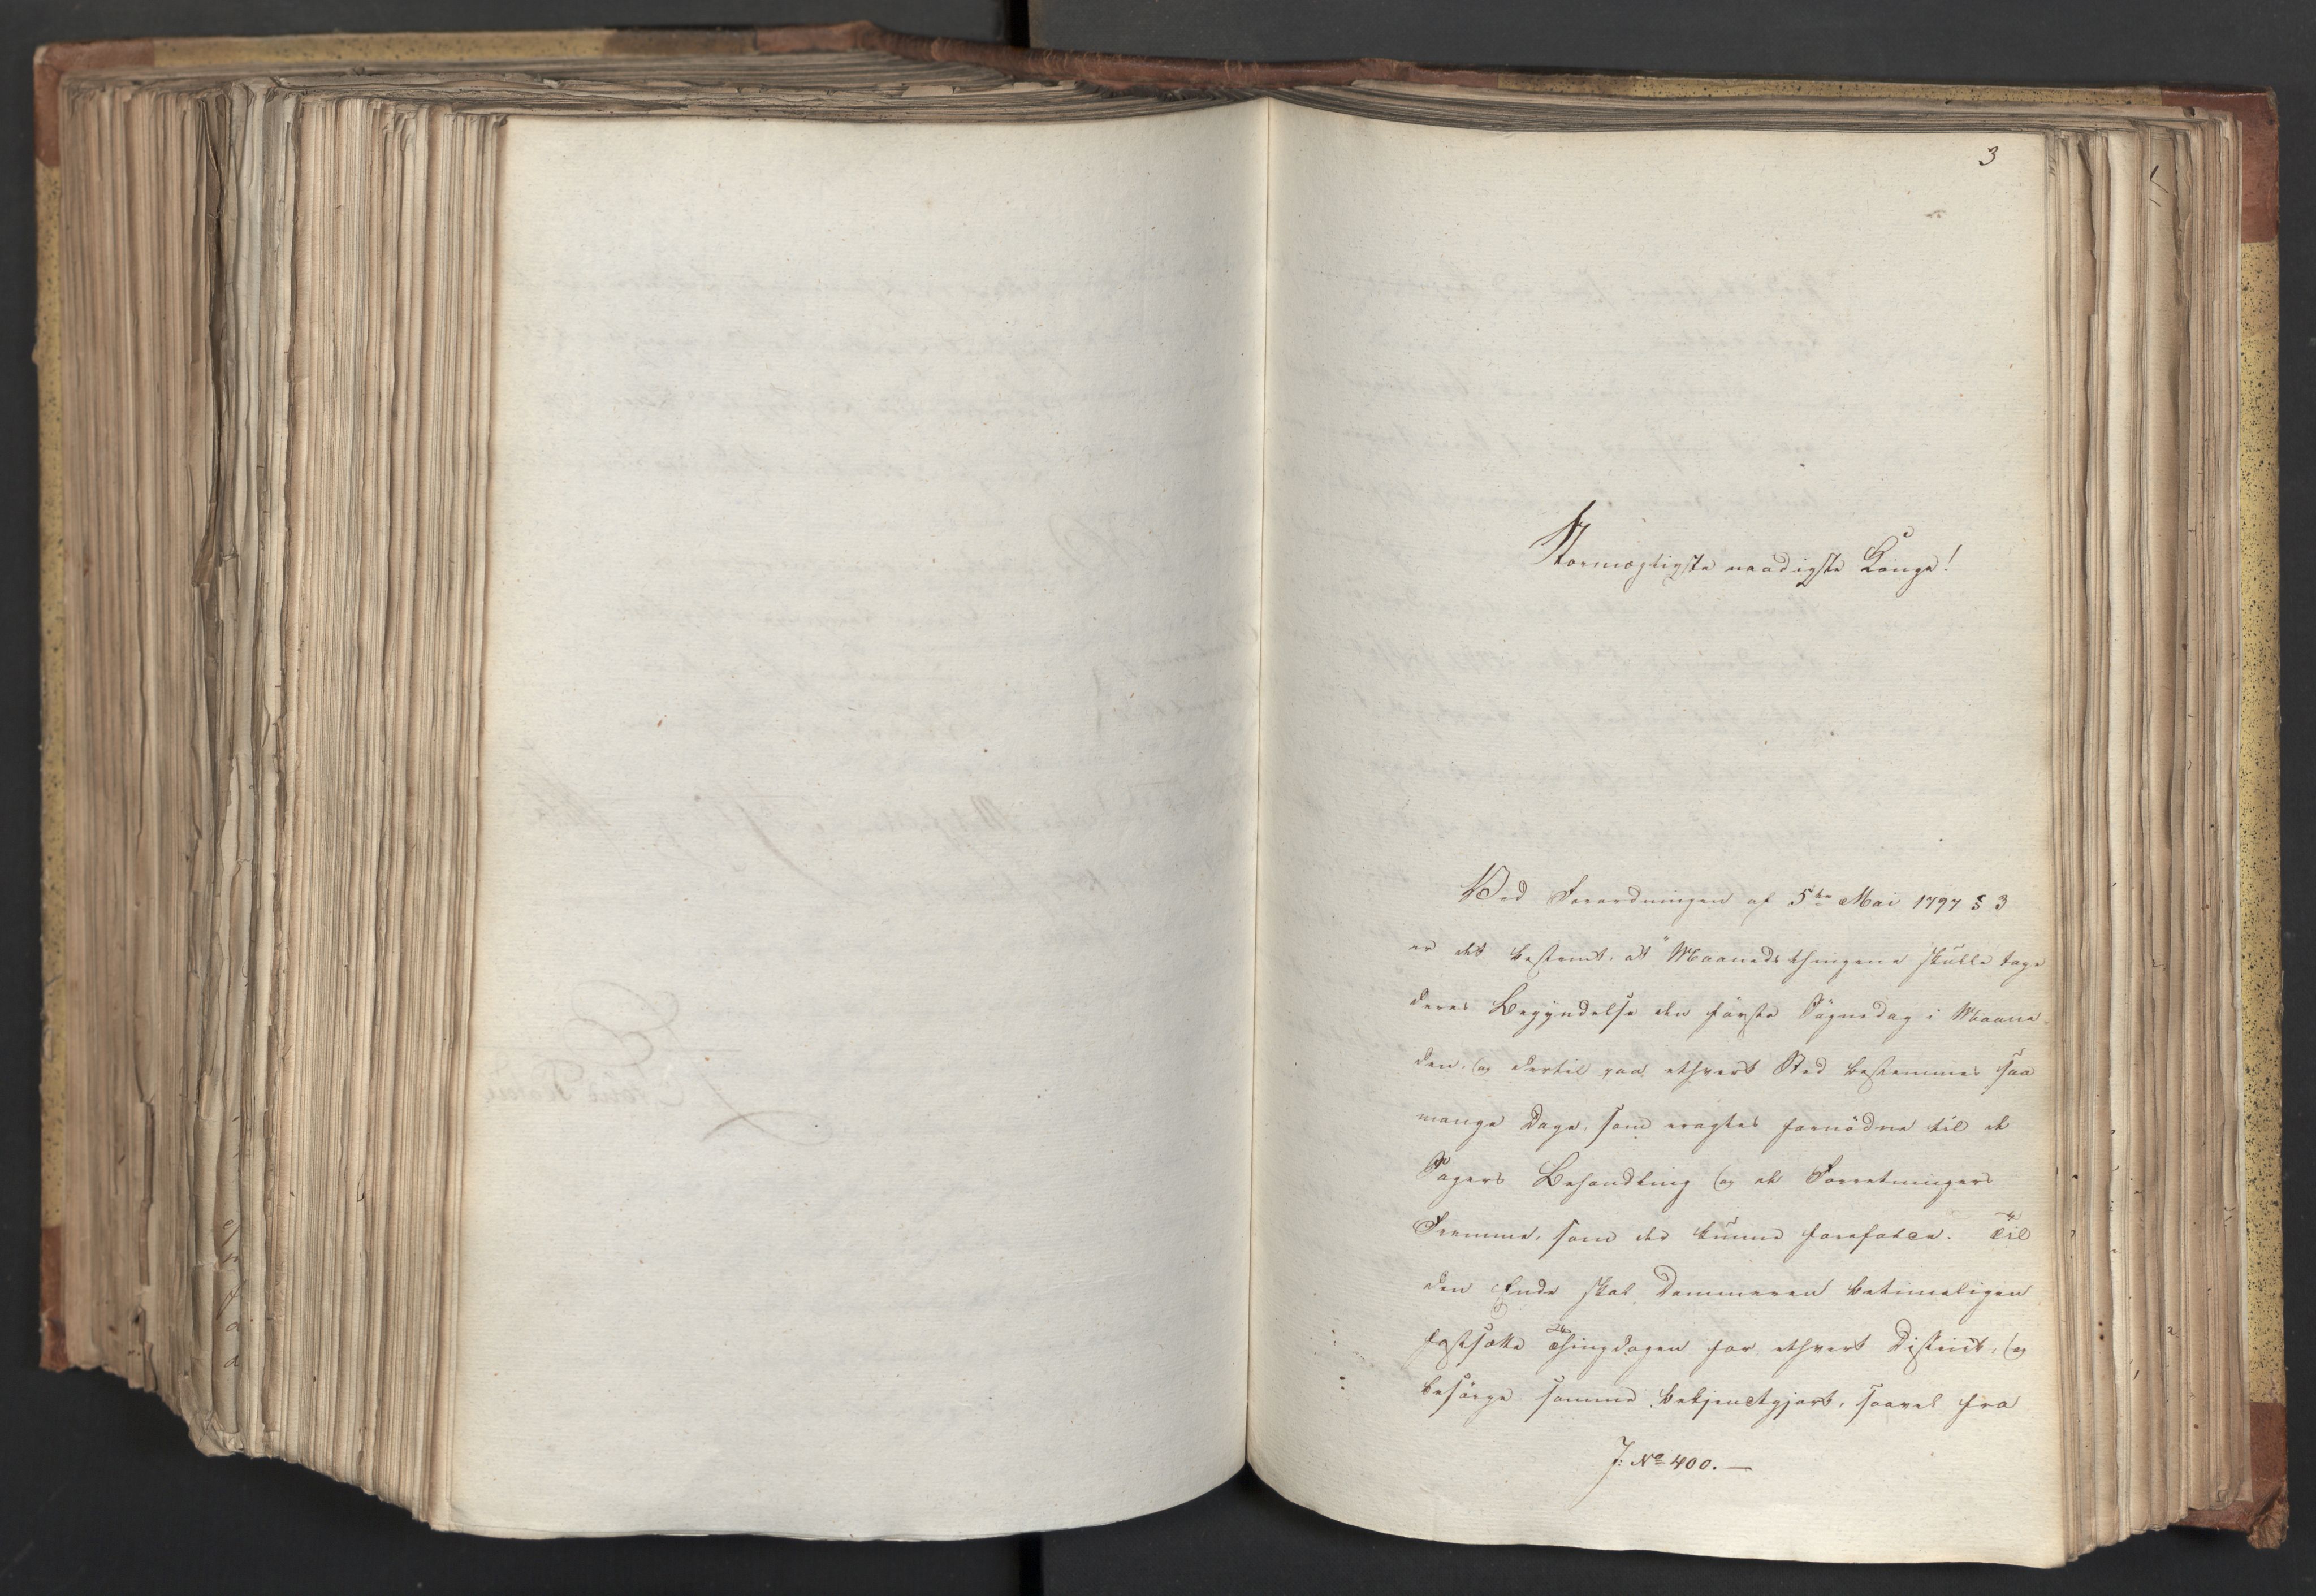 3
Stormægtigste naadigste Konge!
Ved Forordningen af 5te Mai 1797 § 3
er det bestemt, at "Maanedsthingene skulle tage
deres Begyndelse den förste Sögnedag i Maane-
den, og dertil paa ethvert Sted bestemmes saa
mange Dage, som eragtes fornödne til de
Sagers Behandling og de Forretningers
Fremme, som der kunne forefalde. Til
den Ende skal Dommeren betimeligen
fastsætte Thingdagen for ethvert District, og
besörge samme bekjendtgjort, saavel fra
J: No 400. —